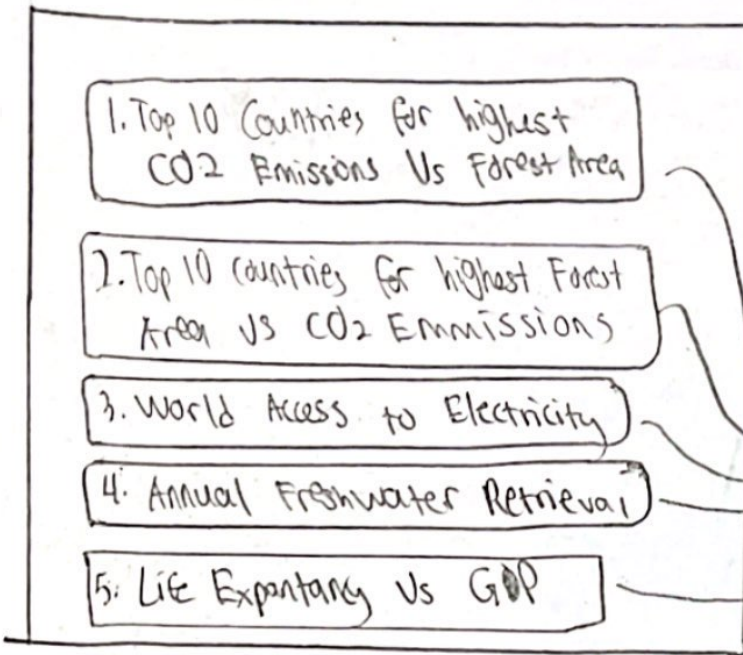 1. Top 10 Countries for highest
CO2 Emissions Vs Forest Area
2. Top 10 Countries for highest Forest
Area Vs CO2 Emmissions
3. World Access to Electricity
4. Annual Freshwater Retrieval
5. Life Expentancy Vs GDP